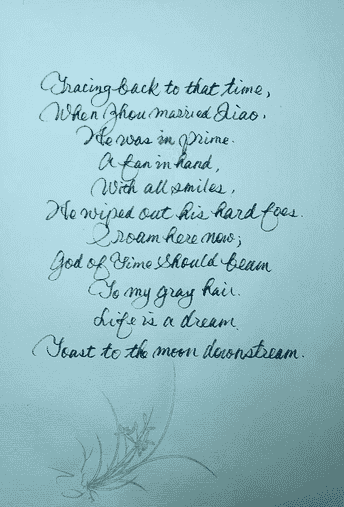 Tracing back to that time,
When Zhou married Qiao.
He was in prime.
A fan in hand,
With all smiles,
He wiped out his hard foes.
I roam here now;
God of Time should beam
To my gray hair.
Life is a dream
Toast to the moon downstream.